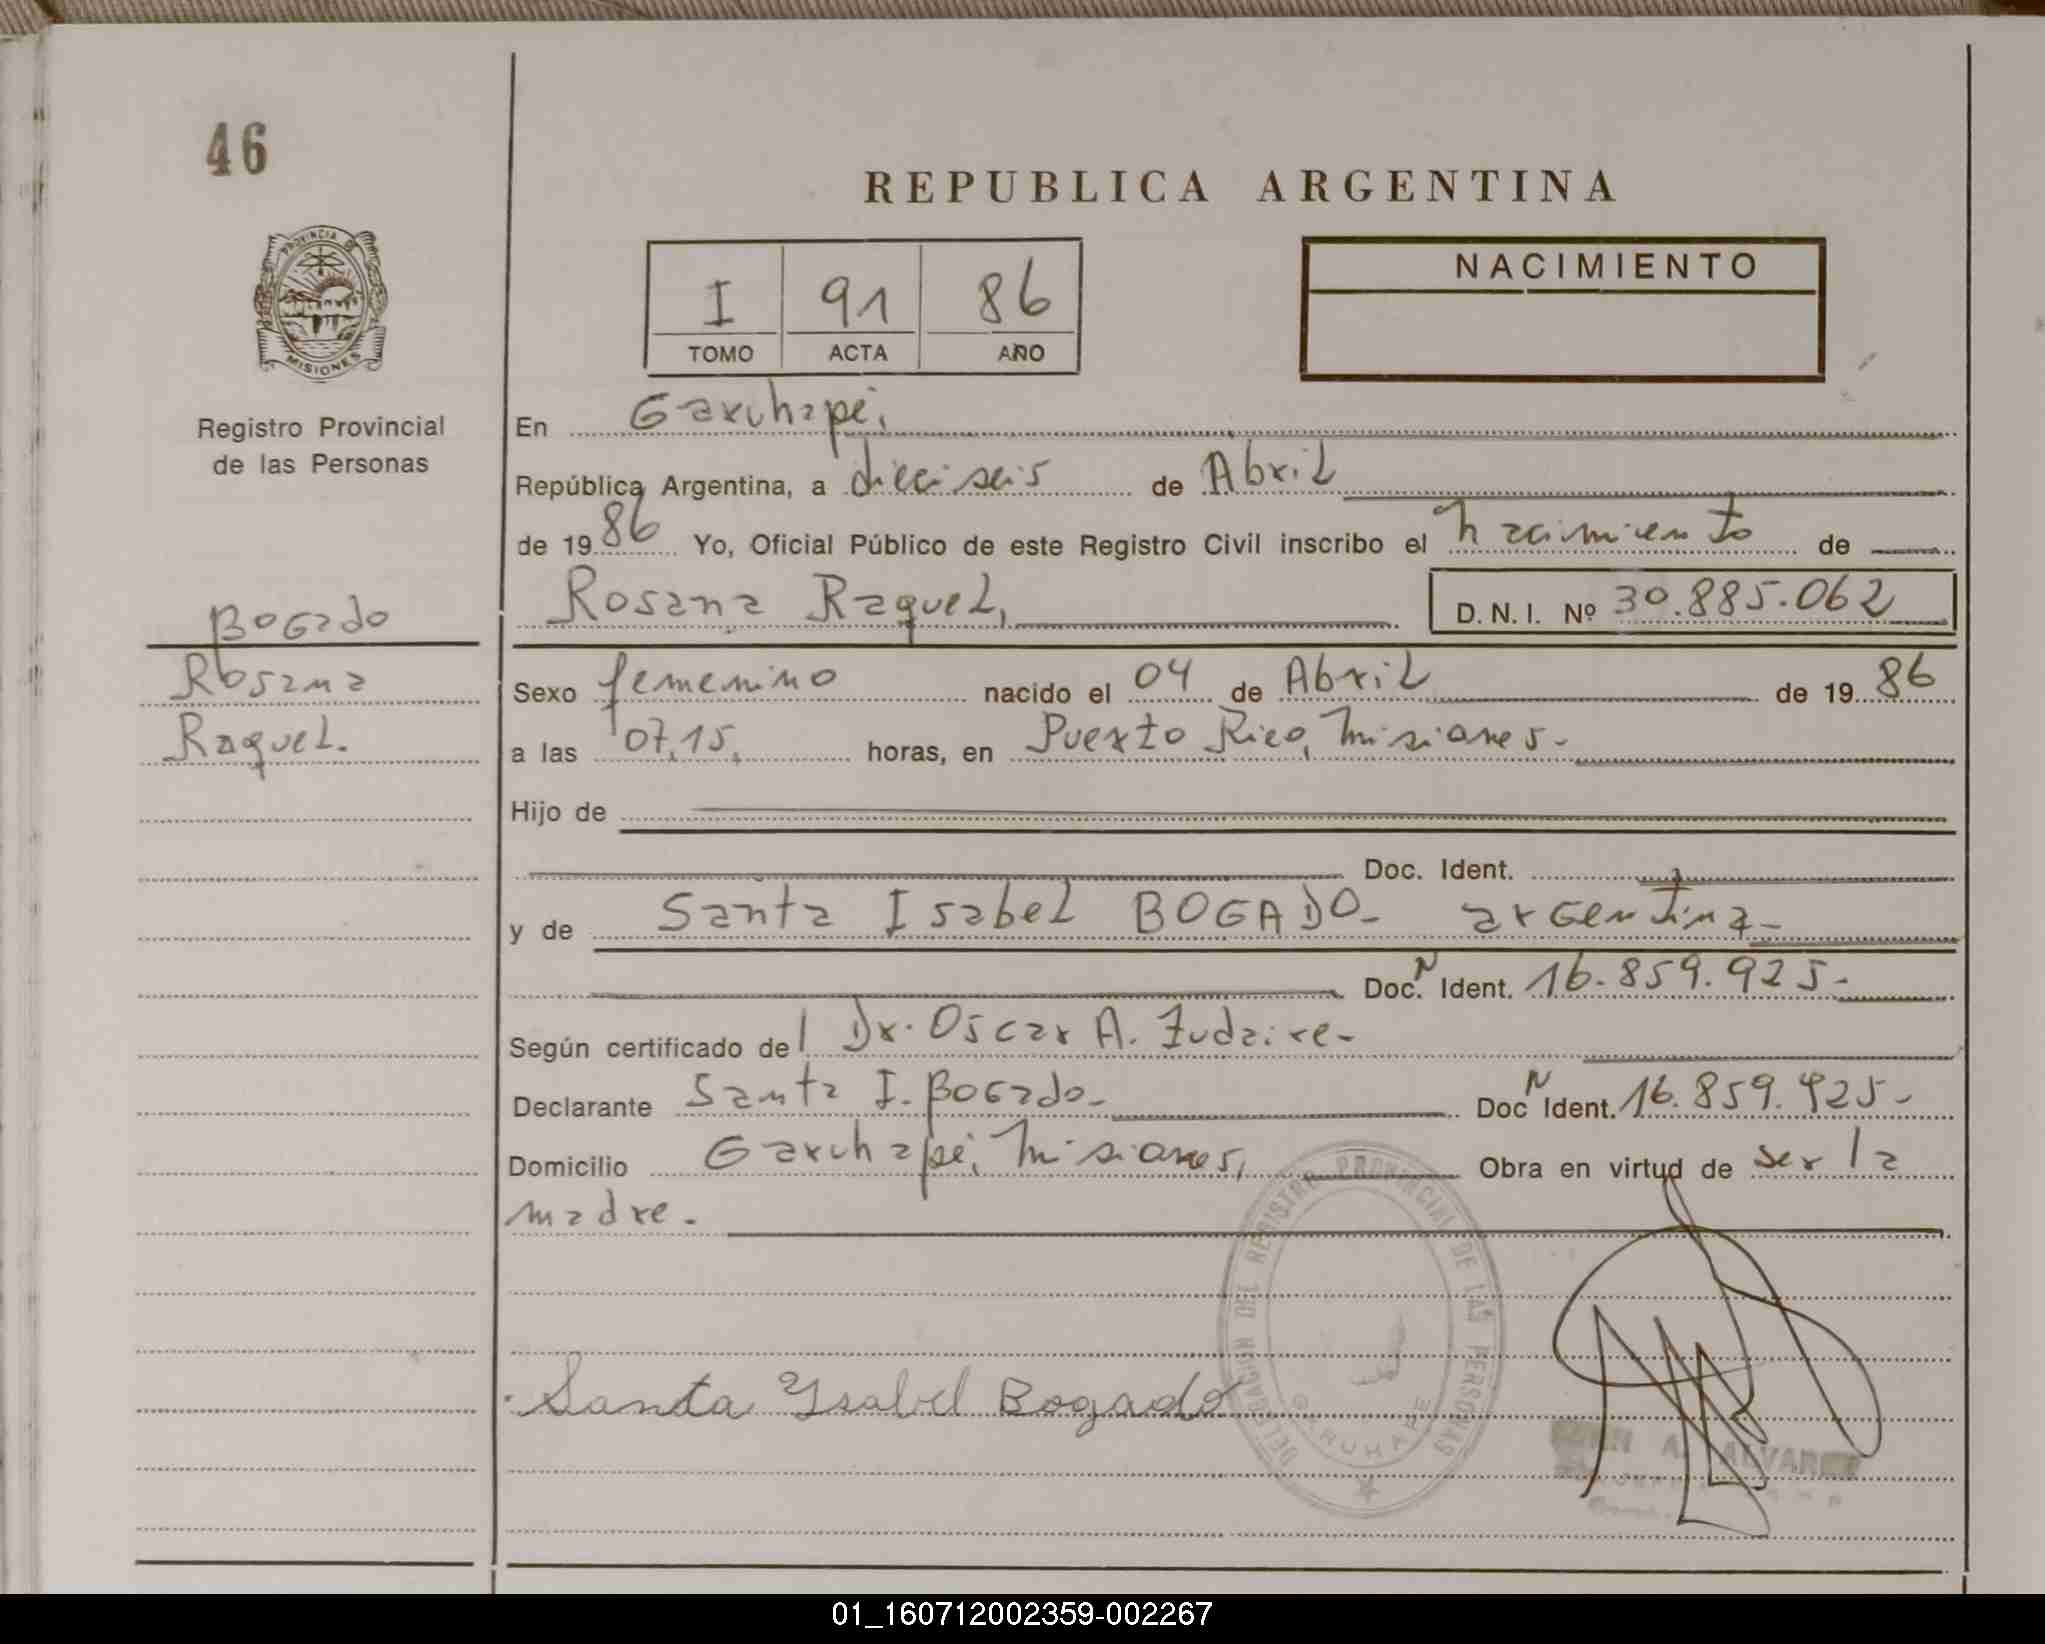 46
REPUBLICA ARGENTINA
PROVINCIA DE
MISIONES
I 91 86
TOMO ACTA AÑO
NACIMIENTO
Registro Provincial
de las Personas
En Garuhapé,
República Argentina, a dieciseis de Abril
de 1986 Yo, Oficial Público de este Registro Civil inscribo el nacimiento de
Rosana Raquel, D.N.I. Nº 30.885.062
Bogado
Rosana
Raquel.
Sexo femenino nacido el 04 de Abril de 1986
a las 07,15, horas, en Puerto Rico, Misiones-
Hijo de
Doc. Ident.
y de Santa Isabel BOGADO- argentina-
Doc. N Ident. 16.859.925-
Según certificado del Dr. Oscar A. Zudaire-
Declarante Santa I. Bogado- Doc N Ident. 16.859.925-
Domicilio Garuhapé, Misiones, Obra en virtud de ser la
madre.
DELEGACION DEL REGISTRO PROVINCIAL DE LAS PERSONAS
GARUHAPE
Santa Ysabel Bogado
A. ALVAREZ
01_160712002359-002267